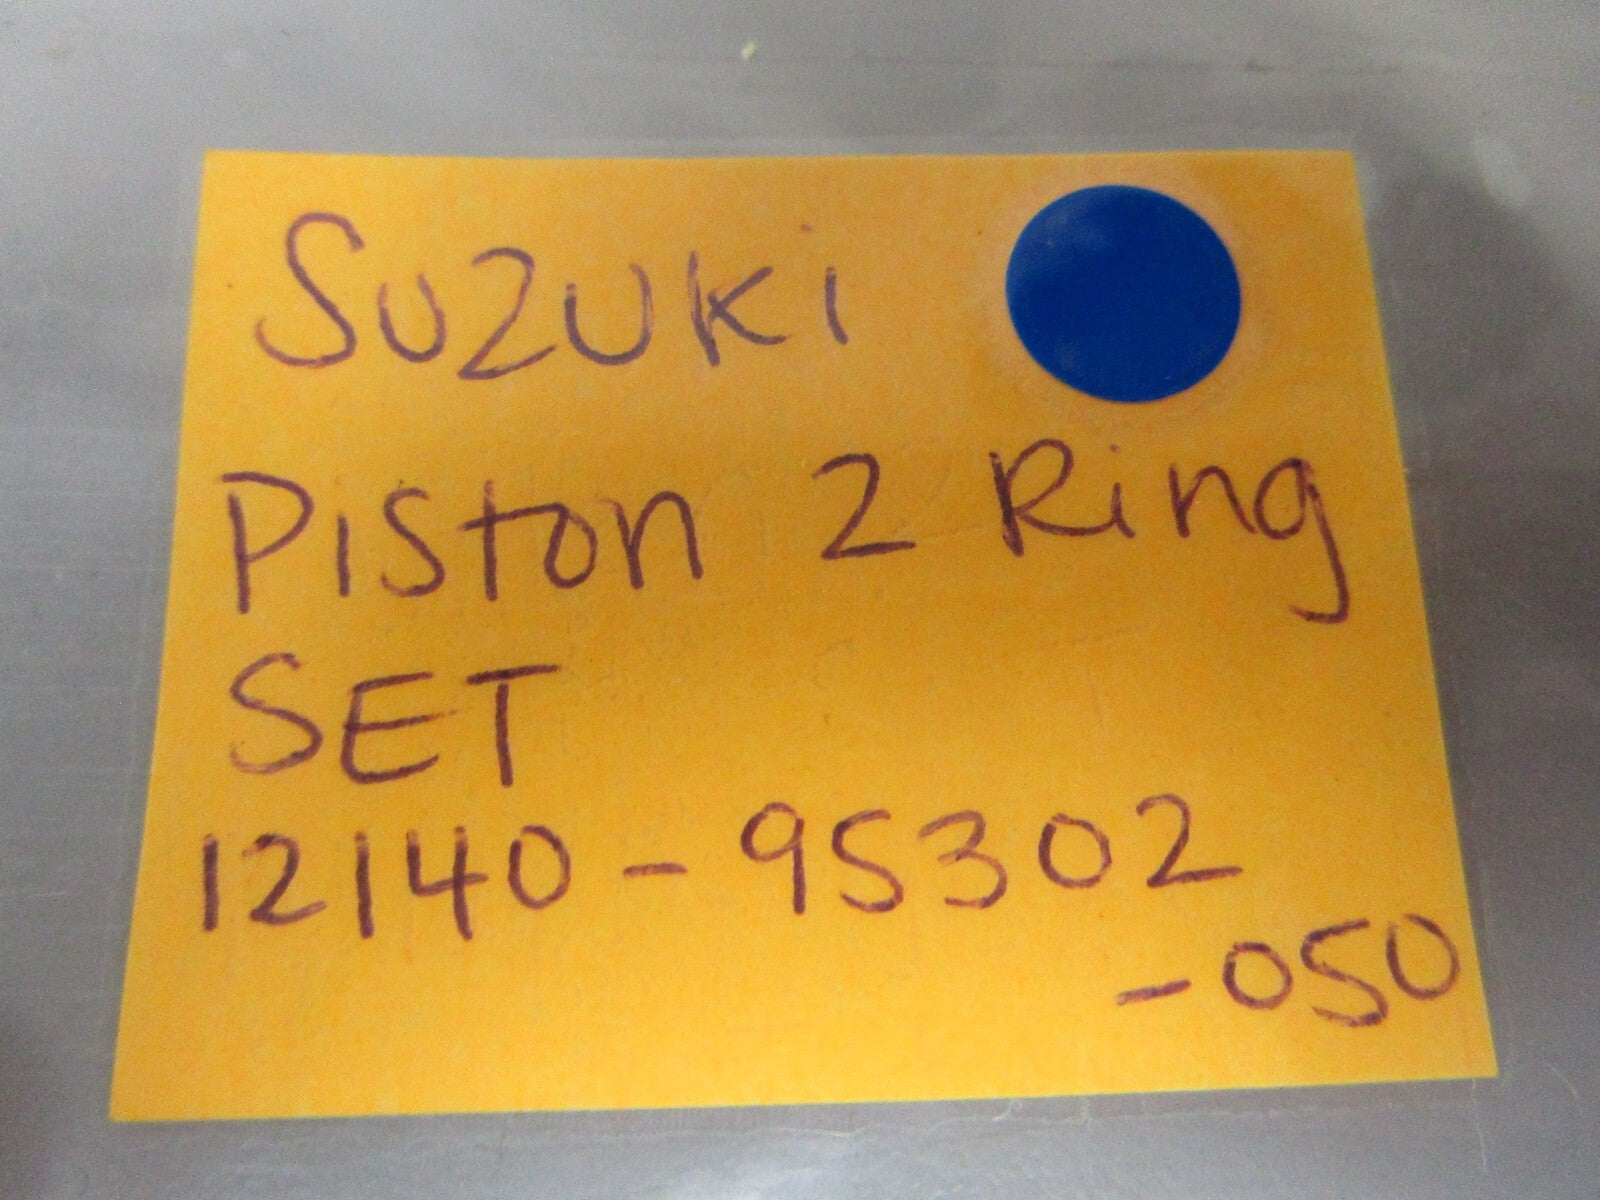 Suzuki
Piston 2 Ring
SET
12140-95302
-050